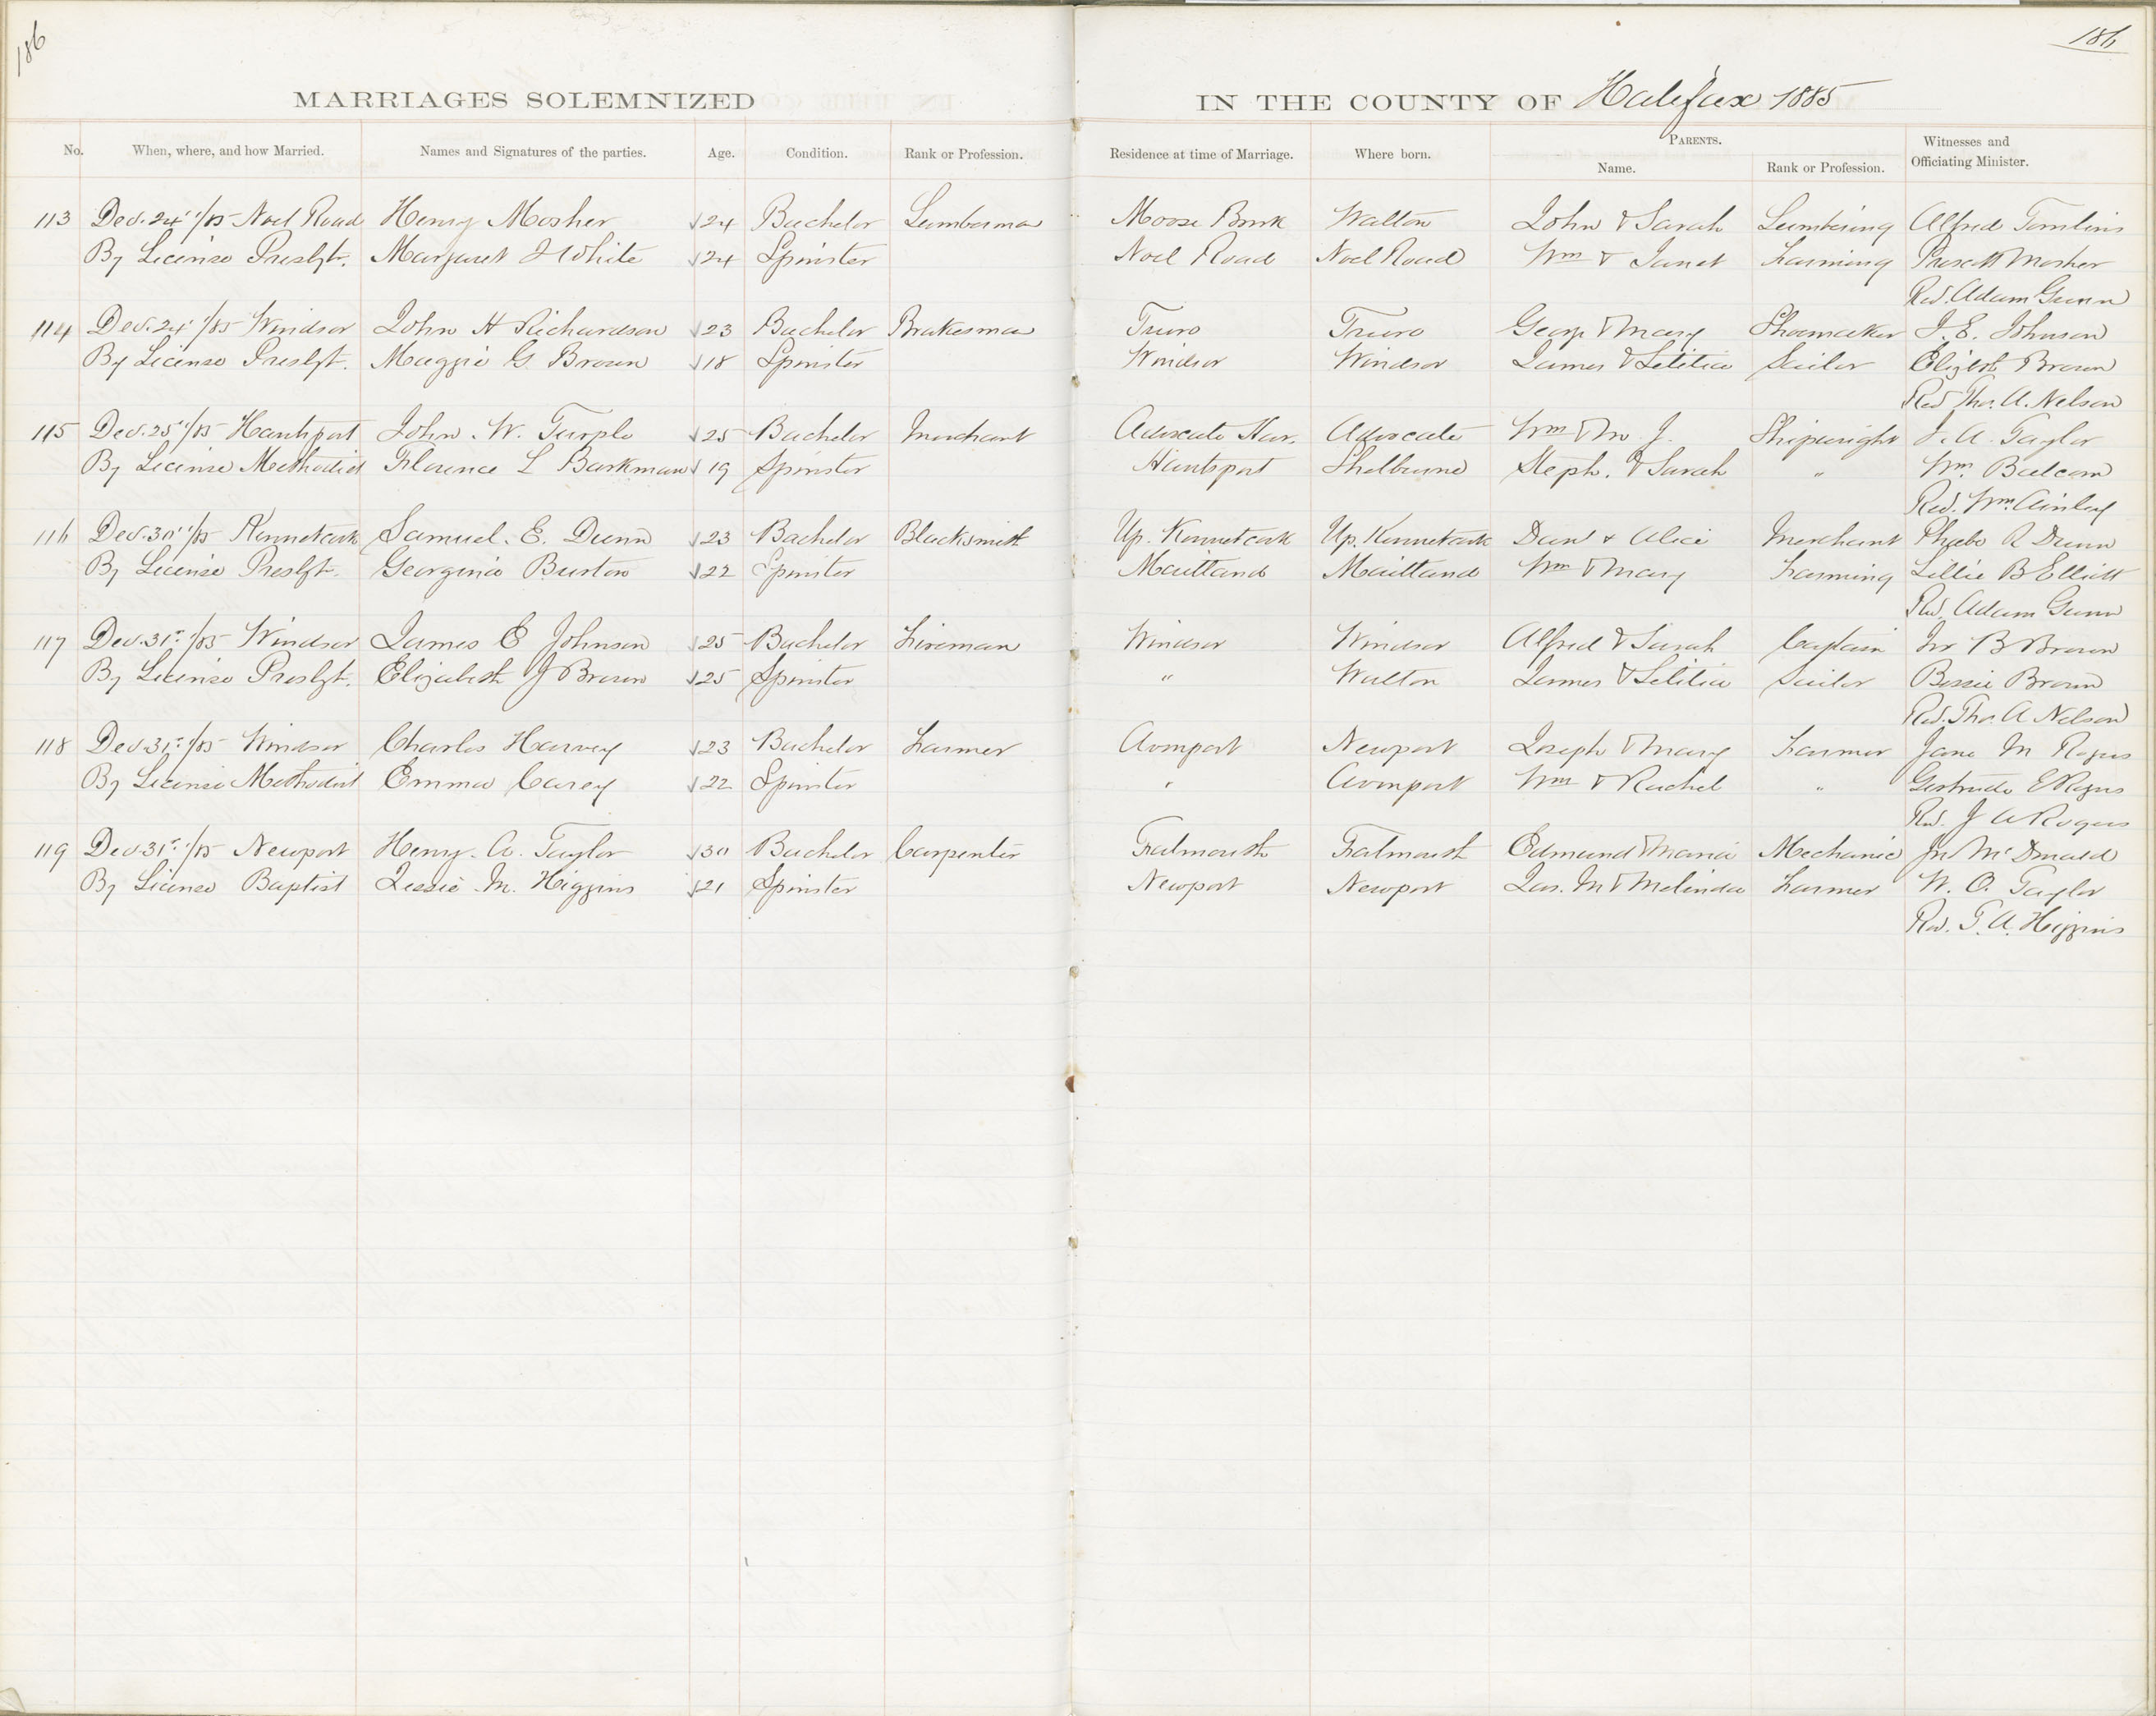 186
186
MARRIAGES SOLEMNIZED IN THE COUNTY OF Halifax 1885
No. When, where, and how Married. Names and Signatures of the parties. Age. Condition. Rank or Profession. Residence at time of Marriage. Where born. PARENTS. Name. Rank or Profession. Witnesses and Officiating Minister.
113 Dec. 24"/85 Noel Road Henry Mosher √24 Bachelor Lumberman Moose Brook Walton John & Sarah Lumbering Alfred Tomlins
By License Presbyt. Margaret J White √24 Spinster Noel Road Noel Road Wm & Janet Farming Prescott Mosher
Rev. Adam Gunn
114 Dec. 24"/85 Windsor John H Richardson √23 Bachelor Brakesman Truro Truro George & Mary Shoemaker J. E. Johnson
By License Presbyt. Maggie G. Brown √18 Spinster Windsor Windsor James & Letitia Sailor Elizbth Brown
Rev Tho. A. Nelson
115 Dec. 25"/85 Hantsport John. W. Turple √25 Bachelor Merchant Advocate Har. Advocate Wm & M. J. Shipwright J. A. Taylor
By License Methodist Florence L Barkman √19 Spinster Hantsport Shelburne Steph. & Sarah " Wm. Balcom
Rev. Wm. Ainley
116 Dec. 30"/85 Kennetcook Samuel. E. Dunn √23 Bachelor Blacksmith Up. Kennetcook Up. Kennetcook Danl & Alice Merchant Phebe R Dunn
By License Presbyt. Georgina Burton √22 Spinster Maitland Maitland Wm & Mary Farming Lillie B Elliott
Rev. Adam Gunn
117 Dec. 31st/85 Windsor James E Johnson √25 Bachelor Fireman Windsor Windsor Alfred & Sarah Captain Jno B Brown
By License Presbyt. Elizabeth J Brown √25 Spinster " Walton James & Letitia Sailor Bessie Brown
Rev. Tho. A Nelson
118 Dec. 31st/85 Windsor Charles Harvey √23 Bachelor Farmer Avonport Newport Joseph & Mary Farmer Jane M Rogers
By License Methodist Emma Carey √22 Spinster " Avonport Wm & Rachel " Gertrude E Rogers
Rev. J A Rogers
119 Dec 31st/85 Newport Henry. A. Taylor √30 Bachelor Carpenter Falmouth Falmouth Edmund & Maria Mechanic Jno McDonald
By License Baptist Jessie. M. Higgins √21 Spinster Newport Newport Jas. M & Melinda Farmer W. O. Taylor
Rev. T. A. Higgins